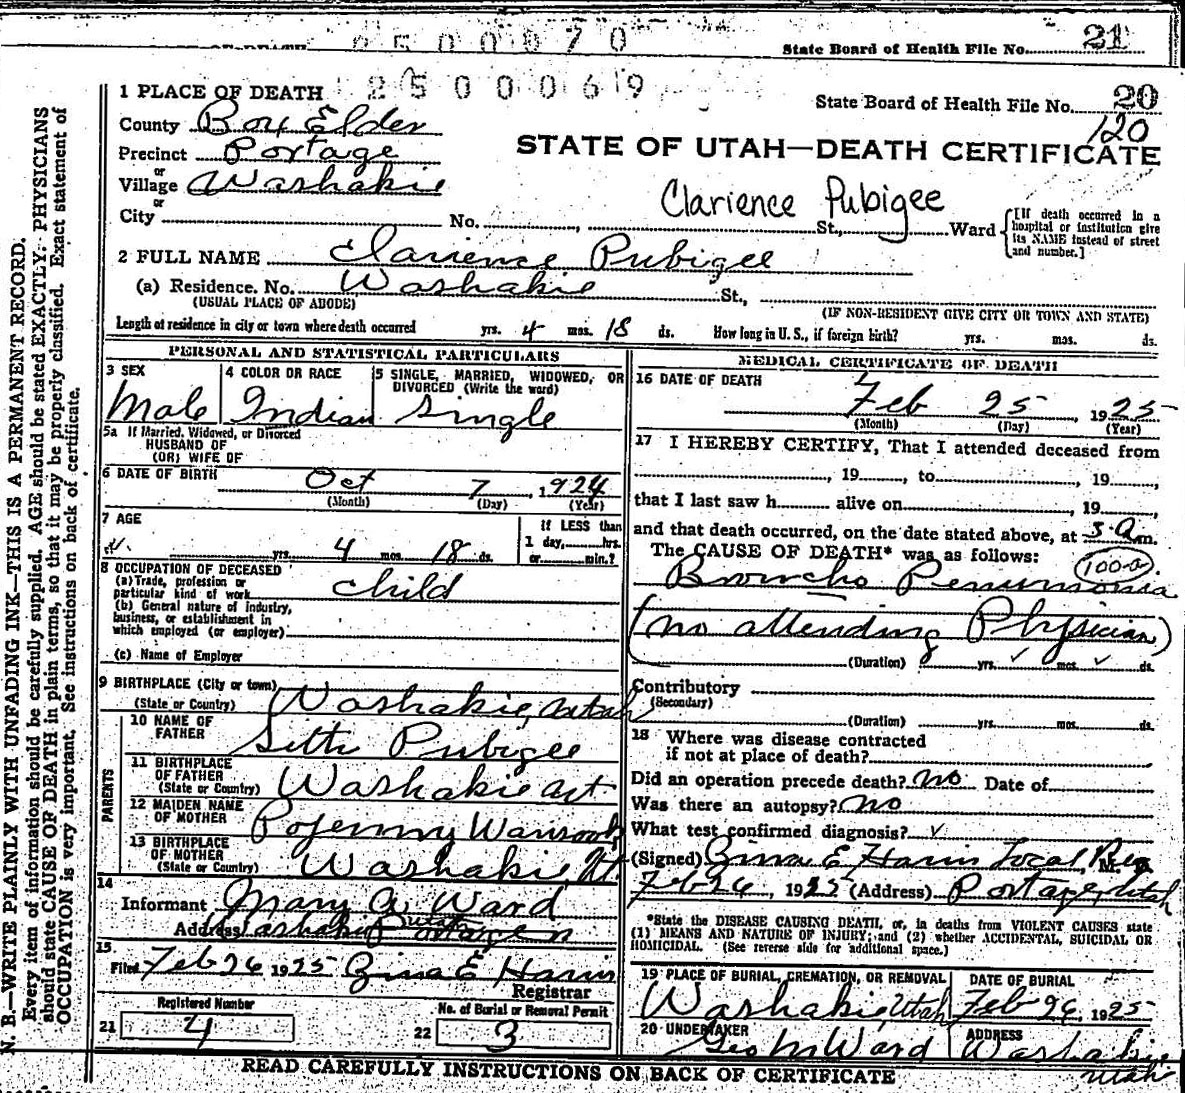 2500070
State Board of Health File No. 21
2500069
1 PLACE OF DEATH
State Board of Health File No. 20
120
County Box Elder
STATE OF UTAH—DEATH CERTIFICATE
Precinct Portage
or
Village Washakie
or
Clarience Pubigee
City No. St., Ward
[If death occurred in a hospital or institution give its NAME instead of street and number.]
2 FULL NAME Clarience Pubigee
(a) Residence. No. Washakie St.,
(USUAL PLACE OF ABODE) (IF NON-RESIDENT GIVE CITY OR TOWN AND STATE)
Length of residence in city or town where death occurred yrs. 4 mos. 18 ds. How long in U. S., if foreign birth? yrs. mos. ds.
PERSONAL AND STATISTICAL PARTICULARS
3 SEX
Male
4 COLOR OR RACE
Indian
5 SINGLE, MARRIED, WIDOWED, OR DIVORCED (Write the word)
Single
5a If Married, Widowed, or Divorced
HUSBAND OF
(OR) WIFE OF
6 DATE OF BIRTH Oct 7, 1924
(Month) (Day) (Year)
7 AGE
yrs. 4 mos. 18 ds.
If LESS than
1 day, hrs.
or min.?
8 OCCUPATION OF DECEASED
(a) Trade, profession or
particular kind of work child
(b) General nature of industry,
business, or establishment in
which employed (or employer)
(c) Name of Employer
9 BIRTHPLACE (City or town)
(State or Country) Washakie, Utah
PARENTS
10 NAME OF
FATHER Pubigee
11 BIRTHPLACE
OF FATHER
(State or Country) Washakie ut
12 MAIDEN NAME
OF MOTHER
13 BIRTHPLACE
OF MOTHER
(State or Country) Washakie, Ut.
14
Informant Mary A Ward
Address Washakie Portage
15
Filed Feb 26 1925 Zina E Harris
Registrar
Registered Number
21 4
No. of Burial or Removal Permit
22 3
MEDICAL CERTIFICATE OF DEATH
16 DATE OF DEATH
Feb 25, 1925
(Month) (Day) (Year)
17 I HEREBY CERTIFY, That I attended deceased from
, 19, to , 19,
that I last saw h alive on , 19,
and that death occurred, on the date stated above, at 5 a.m.
The CAUSE OF DEATH* was as follows:
100-a
Broncho Penumonia
(no attending Physician)
(Duration) yrs. mos. ds.
Contributory
(Secondary)
(Duration) yrs. mos. ds.
18 Where was disease contracted
if not at place of death?
Did an operation precede death? no Date of
Was there an autopsy? no
What test confirmed diagnosis?
(Signed) Zina E Harris Local Reg M. D.
Feb 26, 1925 (Address) Portage, Utah
*State the DISEASE CAUSING DEATH, or, in deaths from VIOLENT CAUSES state
(1) MEANS AND NATURE OF INJURY; and (2) whether ACCIDENTAL, SUICIDAL OR
HOMICIDAL. (See reverse side for additional space.)
19 PLACE OF BURIAL, CREMATION, OR REMOVAL
Washakie, Utah
DATE OF BURIAL
Feb 26, 1925
20 UNDERTAKER
Geo M Ward
ADDRESS
Washakie
Utah
READ CAREFULLY INSTRUCTIONS ON BACK OF CERTIFICATE
N. B.—WRITE PLAINLY WITH UNFADING INK—THIS IS A PERMANENT RECORD.
Every item of information should be carefully supplied. AGE should be stated EXACTLY. PHYSICIANS
should state CAUSE OF DEATH in plain terms, so that it may be properly classified. Exact statement of
OCCUPATION is very important. See instructions on back of certificate.